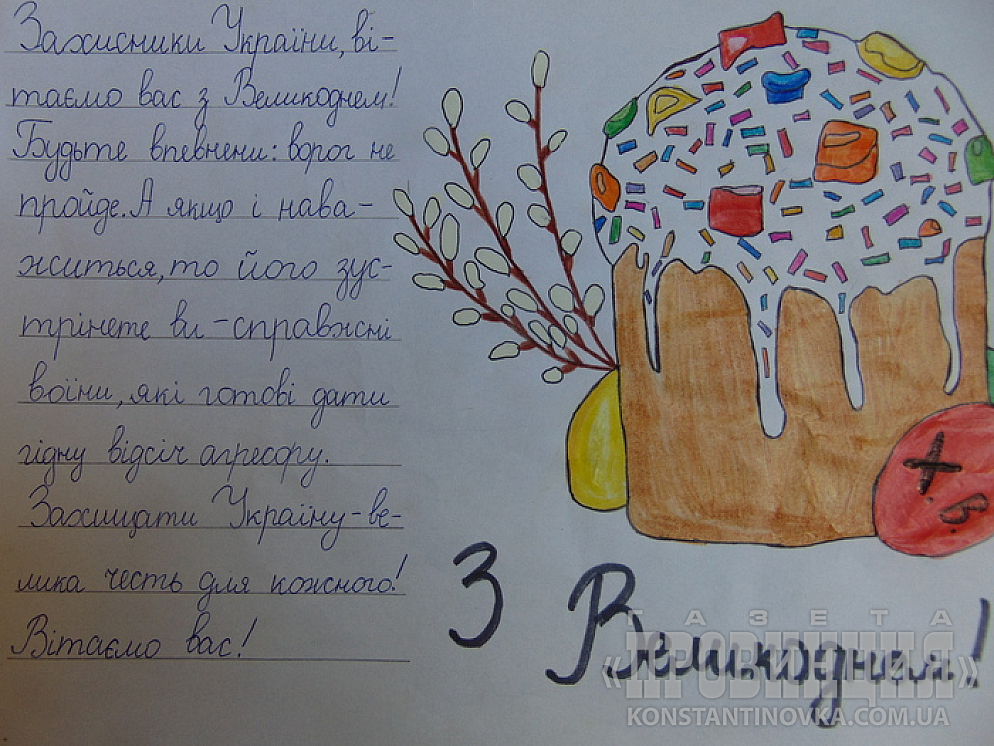 Захисники України, ві-
таємо вас з Великоднем!
Будьте впевнени: ворог не
пройде. А якщо і нава-
житься, то його зус-
трінете ви - справжні
воїни, які готові дати
гідну відсіч агресору.
Захищати Україну - ве-
лика честь для кожного!
Вітаємо вас!
Х.В.
З Великоднем!
ГАЗЕТА
«ПРОВИНЦИЯ»
KONSTANTINOVKA.COM.UA